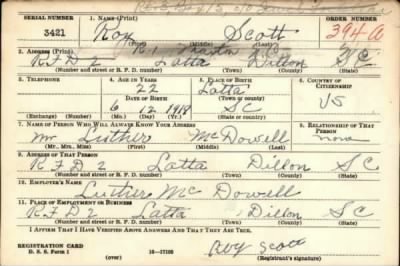 SERIAL NUMBER 1. NAME (Print) ORDER NUMBER
3421 Roy Scott 394A
(First) (Middle) (Last)
2. ADDRESS (Print)
R.F.D 2 Latta Dillon S C
(Number and street or R. F. D. number) (Town) (County) (State)
3. TELEPHONE 4. AGE IN YEARS 5. PLACE OF BIRTH 6. COUNTRY OF CITIZENSHIP
22 Latta
DATE OF BIRTH (Town or county) US
6 12 1918 S C
(Exchange) (Number) (Mo.) (Day) (Yr.) (State or country)
7. NAME OF PERSON WHO WILL ALWAYS KNOW YOUR ADDRESS 8. RELATIONSHIP OF THAT PERSON
Mr Luther McDowell none
(Mr., Mrs., Miss) (First) (Middle) (Last)
9. ADDRESS OF THAT PERSON
R F D 2 Latta Dillon S C
(Number and street or R. F. D. number) (Town) (County) (State)
10. EMPLOYER'S NAME
Luther Mc Dowell
11. PLACE OF EMPLOYMENT OR BUSINESS
R.F.D 2 Latta Dillon S C
(Number and street or R. F. D. number) (Town) (County) (State)
I AFFIRM THAT I HAVE VERIFIED ABOVE ANSWERS AND THAT THEY ARE TRUE.
REGISTRATION CARD Roy Scott
D. S. S. Form 1 (over) 16-17105 (Registrant's signature)